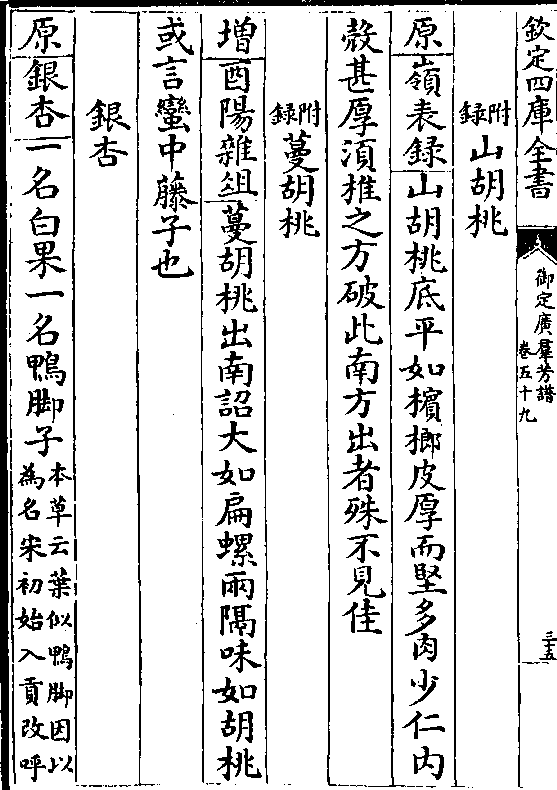 欽定四庫全書
御定廣羣芳譜
卷五十九
三十五
附錄山胡桃
原嶺表録山胡桃底平如檳榔皮厚而堅多肉少仁内
殻甚厚湏推之方破此南方出者殊不見佳
附錄蔓胡桃
増酉陽雜俎蔓胡桃出南詔大如扁螺兩隔味如胡桃
或言蠻中藤子也
銀杏
原銀杏一名白果一名鴨脚子本草云葉似鴨脚因以
為名宋初始入貢改呼